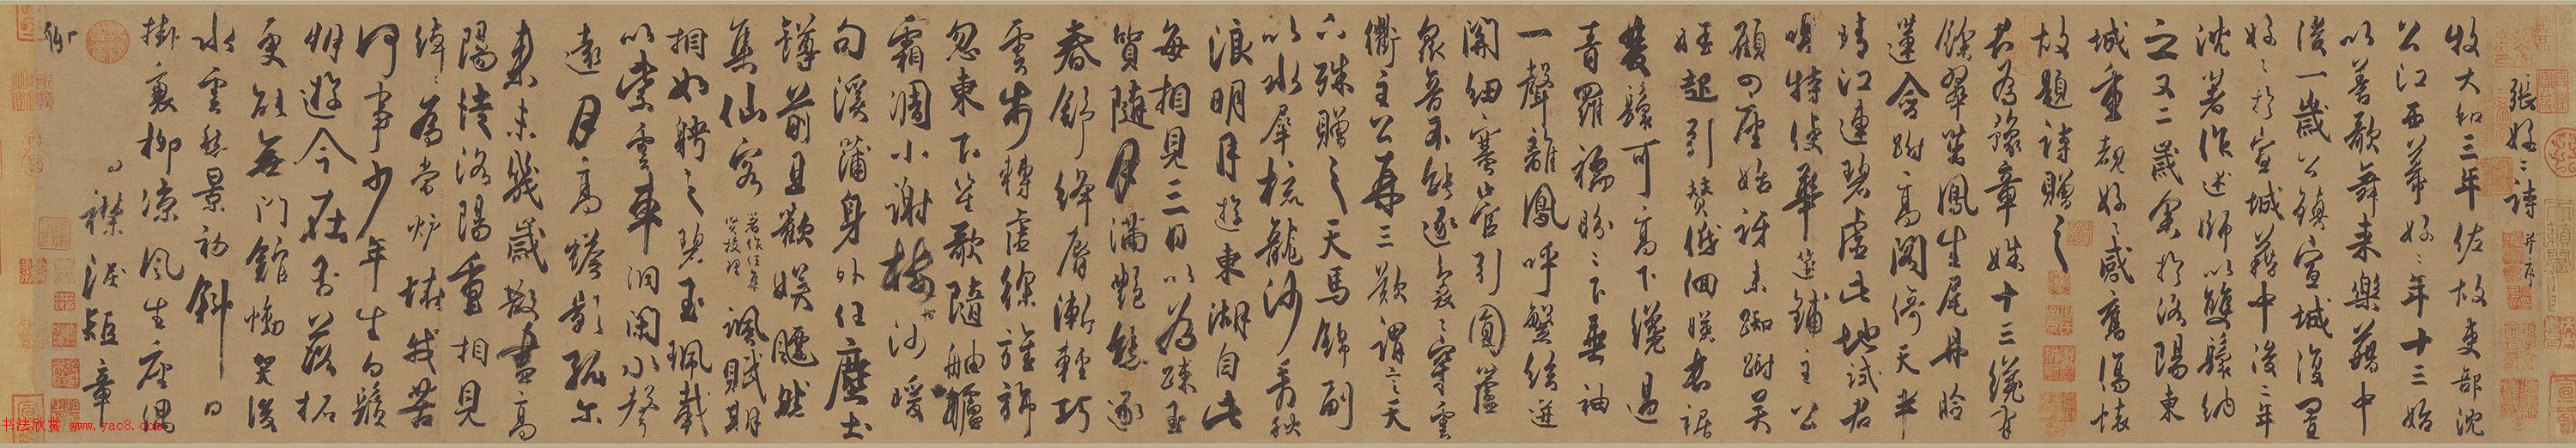 張好好詩 并序
牧大和三年佐故吏部沈
公江西幕好好年十三始
以善歌舞来樂籍中
後一歲公鎮宣城復置
好好於宣城籍中後二年
沈著作述師以雙鬟納
之又二歲余於洛陽東
城重覩好好感舊傷懷
故題詩贈之
君為豫章姝十三纔有
餘翠茁鳳生尾丹臉
蓮含跗高閣倚天半
晴江連碧虛此地試君
唱特使華筵鋪主公
顧四座始訝来踟躕吳
娃起引贊低佪暎長裾
雙鬟可高下纔過
青羅襦盼盼下垂袖
一聲離鳳呼繁弦迸
關紐塞管引圓蘆
衆音不能逐裊裊穿雲
衢主公再三歎謂言天
下殊贈之天馬錦副
以水犀梳龍沙看秋
浪明月遊東湖自此
每相見三日以為踈玉
質隨月滿艷態逐
春舒絳脣漸輕巧
雲步轉虛徐旌旆
忽東下笙歌隨舳艫
霜凋小謝樹沙暖
句溪蒲身外任塵土
罇前且歡娛飄然
集仙客 著作任集賢校理 諷賦期
相如聘之碧玉珮載
以紫雲車洞閑水聲
遠月高蟾影孤尔
来未幾歲散盡高
陽徒洛陽重相見
綽綽為當爐恠我苦
何事少年生白鬚
朋遊今在否落拓
更能無門館慟哭後
水雲愁景初斜日
掛衰柳涼風生座隅
襟淚短章
聊
书法欣赏 www.yac8.com